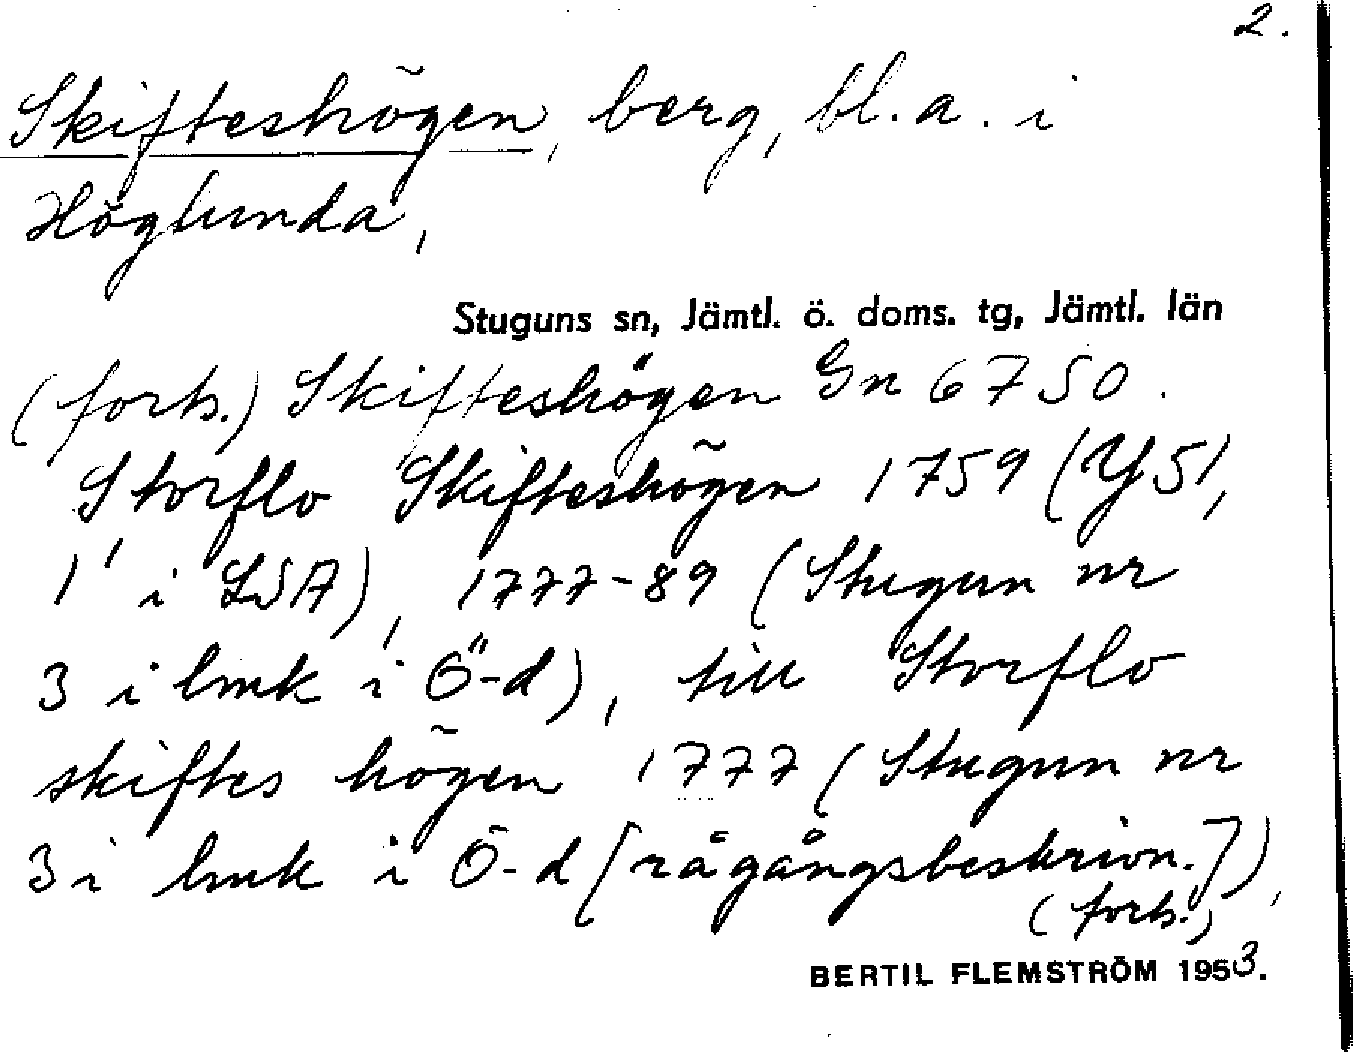 2.
Skifteshögen, berg, bl. a. i
Höglunda,
Stuguns sn, Jämtl. ö. doms. tg, Jämtl. län
(forts.) Skifteshögen Gn 6750.
Storflo Skifteshögen 1759 (Y51,
1' i LSA), 1777-89 (Stugun nr
3 i lmk i Ö-d), till Storflo
skiftes högen 1777 (Stugun nr
3 i lmk i Ö-d [rågångsbeskrivn.]),
(forts.)
BERTIL FLEMSTRÖM 1953.